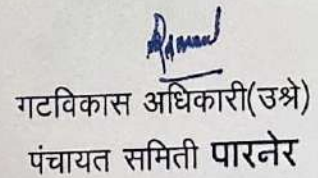 गटविकास अधिकारी(उश्रे)
पंचायत समिती पारनेर